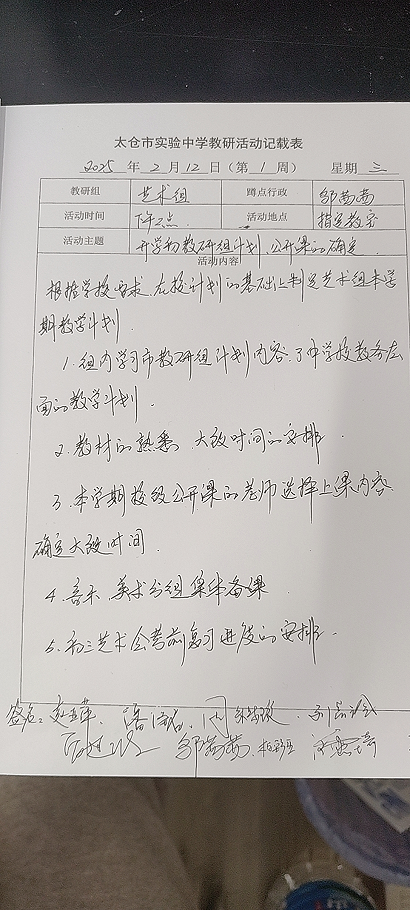 太仓市实验中学教研活动记载表
2025 年 2 月 12 日（第 1 周） 星期 三
教研组 艺术组 蹲点行政 邹茜茜
活动时间 下午二点 活动地点 指定教室
活动主题 开学初教研组计划、公开课的确定
活动内容
根据学校要求、在校计划的基础上制定艺术组本学
期教学计划.
1. 组内学习市教研组计划内容、了中学校教务在
面的教学计划.
2. 教材的熟悉、大致时间的安排.
3. 本学期校级公开课的老师选择上课内容
确定大致时间.
4. 音乐、美术分组集体备课
5. 初三艺术会考前复习进度的安排.
签名:
邹茜茜